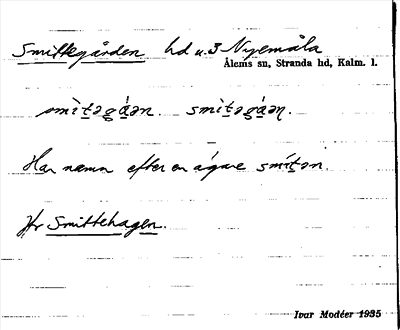 Smittegården hd u. 3 Nyemåla
Ålems sn, Stranda hd, Kalm. l.
smìt̲əg̲á̲ən. smìt̲əg̲á̲ən̥.
Har namn efter en ägare smít̲ən.
Jfr Smittehagen.
Ivar Modéer 1935